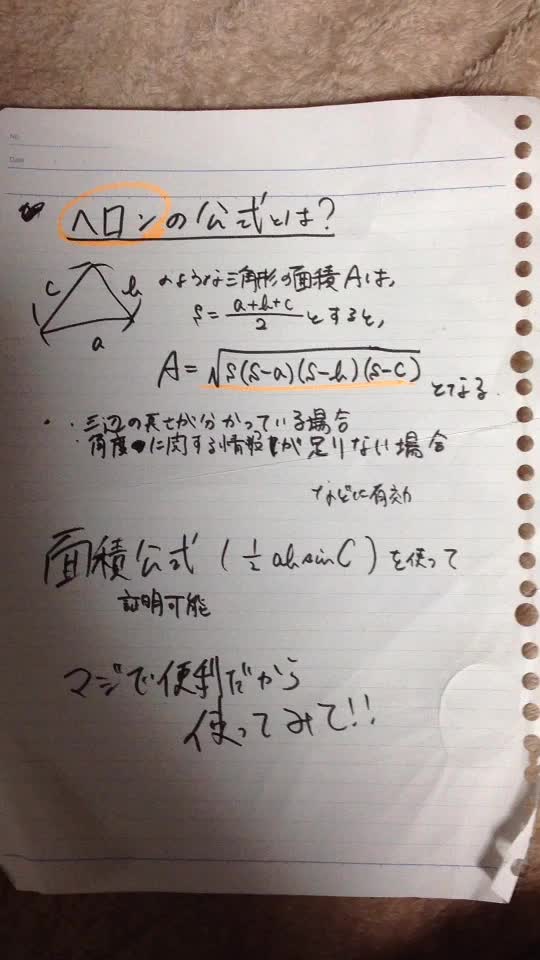 No.
Date
ヘロンの公式とは?
c b
a
のような三角形の面積Aは、
S=(a+b+c)/2 とすると、
A=√S(S-a)(S-b)(S-c)
となる.
・三辺の長さが分かっている場合
・角度に関する情報が足りない場合
などに有効
面積公式 (1/2 ab sinC) を使って
証明可能
マジで便利だから
使ってみて!!